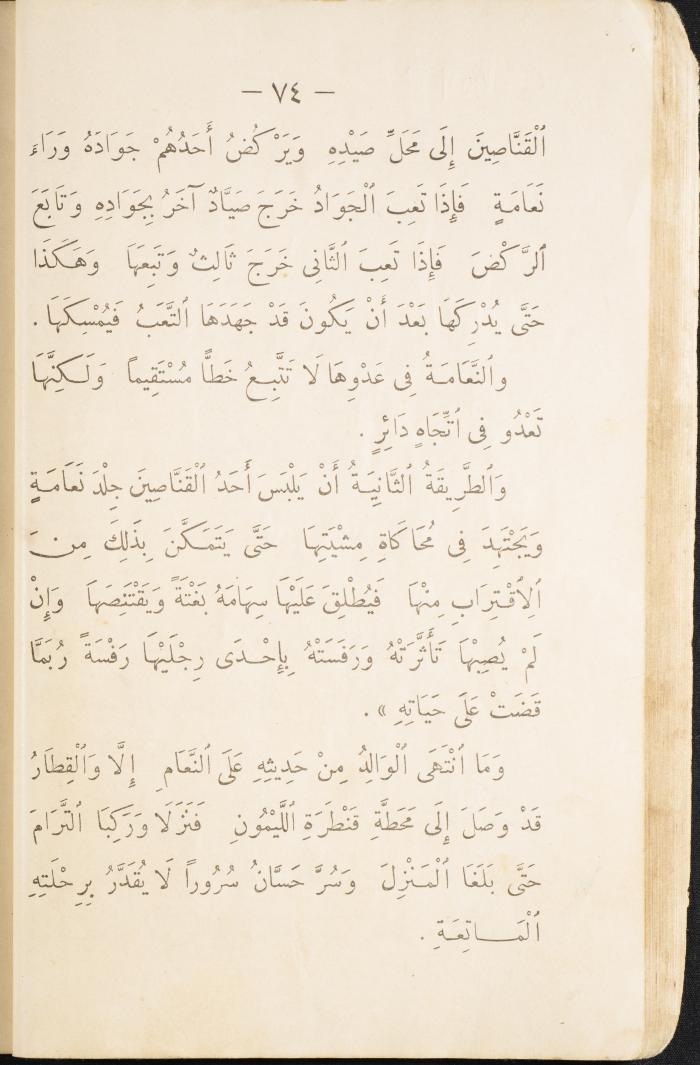 — ٧٤ —
ٱلْقَنَّاصِينَ إِلَى مَحَلِّ صَيْدِهِ وَيَرْكُضُ أَحَدُهُمْ جَوَادَهُ وَرَاءَ
نَعَامَةٍ فَإِذَا تَعِبَ ٱلْجَوَادُ خَرَجَ صَيَّادٌ آخَرُ بِجَوَادِهِ وَتَابَعَ
ٱلرَّكْضَ فَإِذَا تَعِبَ ٱلثَّانِى خَرَجَ ثَالِثٌ وَتَبِعَهَا وَهَكَذَا
حَتَّى يُدْرِكَهَا بَعْدَ أَنْ يَكُونَ قَدْ جَهَدَهَا ٱلتَّعَبُ فَيُمْسِكَهَا .
وٱلنَّعَامَةُ فِى عَدْوِهَا لَا تَتَّبِعُ خَطًّا مُسْتَقِيماً وَلَكِنَّهَا
تَعْدُو فِى ٱتِّجَاهٍ دَائِرٍ .
وَٱلطَّرِيقَةُ ٱلثَّانِيَةُ أَنْ يَلْبَسَ أَحَدُ ٱلْقَنَّاصِينَ جِلْدَ نَعَامَةٍ
وَيَجْتَهِدَ فِى مُحَاكَاةِ مِشْيَتِهَا حَتَّى يَتَمَكَّنَ بِذَلِكَ مِنَ
ٱلِاقْتِرَابِ مِنْهَا فَيُطْلِقَ عَلَيْهَا سِهَامَهُ بَغْتَةً وَيَقْتَنِصَهَا وَإِنْ
لَمْ يُصِبْهَا تَأَثَّرَتْهُ وَرَفَسَتْهُ بِإِحْدَى رِجْلَيْهَا رَفْسَةً رُبَمَّا
قَضَتْ عَلَى حَيَاتِهِ » .
وَمَا ٱنْتَهَى ٱلْوَالِدُ مِنْ حَدِيثِهِ عَلَى ٱلنَّعَامِ إِلَّا وَٱلْقِطَارُ
قَدْ وَصَلَ إِلَى مَحَطَّةِ قَنْطَرَةِ ٱللَّيْمُونِ فَنَزَلَا وَرَكِبَا ٱلتَّرَامَ
حَتَّى بَلَغَا ٱلْمَنْزِلَ وَسُرَّ حَسَّانُ سُرُوراً لَا يُقَدَّرُ بِرِحْلَتِهِ
ٱلْمَاتِعَةِ .